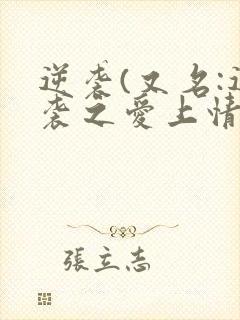 逆袭(又名:逆
袭之爱上情
張立志